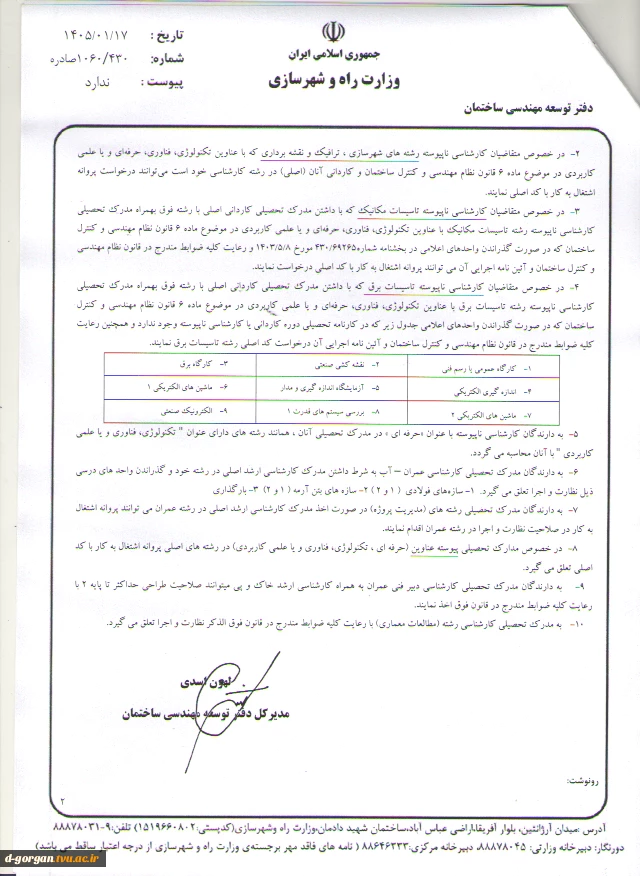 تاریخ : ۱۴۰۵/۰۱/۱۷
شماره: ۱۰۶۰/۴۳۰صادره
پیوست : ندارد
جمهوری اسلامی ایران
وزارت راه و شهرسازی
دفتر توسعه مهندسی ساختمان
۲- در خصوص متقاضیان کارشناسی ناپیوسته رشته های شهرسازی ، ترافیک و نقشه برداری که با عناوین تکنولوژی، فناوری، حرفه‌ای و یا علمی
کاربردی در موضوع ماده ۶ قانون نظام مهندسی و کنترل ساختمان و کاردانی آنان (اصلی) در رشته کارشناسی خود است می‌توانند درخواست پروانه
اشتغال به کار با کد اصلی نمایند.
۳- در خصوص متقاضیان کارشناسی ناپیوسته تاسیسات مکانیک که با داشتن مدرک تحصیلی کاردانی اصلی با رشته فوق بهمراه مدرک تحصیلی
کارشناسی ناپیوسته رشته تاسیسات مکانیک با عناوین تکنولوژی، فناوری، حرفه‌ای و یا علمی کاربردی در موضوع ماده ۶ قانون نظام مهندسی و کنترل
ساختمان که در صورت گذراندن واحدهای اعلامی در بخشنامه شماره۴۳۰/۶۹۲۶۵ مورخ ۱۴۰۳/۵/۸ و رعایت کلیه ضوابط مندرج در قانون نظام مهندسی
و کنترل ساختمان و آئین نامه اجرایی آن می توانند پروانه اشتغال به کار با کد اصلی درخواست نمایند.
۴- در خصوص متقاضیان کارشناسی ناپیوسته تاسیسات برق که با داشتن مدرک تحصیلی کاردانی اصلی با رشته فوق بهمراه مدرک تحصیلی
کارشناسی ناپیوسته رشته تاسیسات برق با عناوین تکنولوژی، فناوری، حرفه‌ای و یا علمی کاربردی در موضوع ماده ۶ قانون نظام مهندسی و کنترل
ساختمان که در صورت گذراندن واحدهای اعلامی جدول زیر که در کارنامه تحصیلی دوره کاردانی یا کارشناسی ناپیوسته وجود ندارد و همچنین رعایت
کلیه ضوابط مندرج در قانون نظام مهندسی و کنترل ساختمان و آئین نامه اجرایی آن درخواست کد اصلی رشته تاسیسات برق نمایند.
۱- کارگاه عمومی یا رسم فنی ۲- نقشه کشی صنعتی ۳- کارگاه برق
۴- اندازه گیری الکتریکی ۵- آزمایشگاه اندازه گیری و مدار ۶- ماشین های الکتریکی ۱
۷- ماشین های الکتریکی ۲ ۸- بررسی سیستم های قدرت ۱ ۹- الکترونیک صنعتی
۵- به دارندگان کارشناسی ناپیوسته با عنوان «حرفه ای» در مدرک تحصیلی آنان ، همانند رشته های دارای عنوان " تکنولوژی، فناوری و یا علمی
کاربردی " با آنان محاسبه می گردد.
۶- به دارندگان مدرک تحصیلی کارشناسی عمران – آب به شرط داشتن مدرک کارشناسی ارشد اصلی در رشته خود و گذراندن واحد های درسی
ذیل نظارت و اجرا تعلق می گیرد. ۱- سازه‌های فولادی (۱ و ۲) ۲- سازه های بتن آرمه (۱ و ۲) ۳- بارگذاری
۷- به دارندگان مدرک تحصیلی رشته های (مدیریت پروژه) در صورت اخذ مدرک کارشناسی ارشد اصلی در رشته عمران می توانند پروانه اشتغال
به کار در صلاحیت نظارت و اجرا در رشته عمران اقدام نمایند.
۸- در خصوص مدارک تحصیلی پیوسته عناوین (حرفه ای ، تکنولوژی، فناوری و یا علمی کاربردی) در رشته های اصلی پروانه اشتغال به کار با کد
اصلی تعلق می گیرد.
۹- به دارندگان مدرک تحصیلی کارشناسی دبیر فنی عمران به همراه کارشناسی ارشد خاک و پی میتوانند صلاحیت طراحی حداکثر تا پایه ۲ با
رعایت کلیه ضوابط مندرج در قانون فوق اخذ نمایند.
۱۰- به مدرک تحصیلی کارشناسی رشته (مطالعات معماری) با رعایت کلیه ضوابط مندرج در قانون فوق الذکر نظارت و اجرا تعلق می گیرد.
لهون اسدی
مدیرکل دفتر توسعه مهندسی ساختمان
رونوشت:
۲
آدرس :میدان آرژانتین، بلوار آفریقا،اراضی عباس آباد،ساختمان شهید دادمان،وزارت راه وشهرسازی(کدپستی:۱۵۱۹۶۶۰۸۰۲) تلفن:۹-۸۸۸۷۸۰۳۱
دورنگار: دبیرخانه وزارتی: ۸۸۸۷۸۰۴۵، دبیرخانه مرکزی:۸۸۶۴۶۳۳۳ ( نامه های فاقد مهر برجسته‌ی وزارت راه و شهرسازی از درجه اعتبار ساقط می باشد)
d-gorgan.tvu.ac.ir